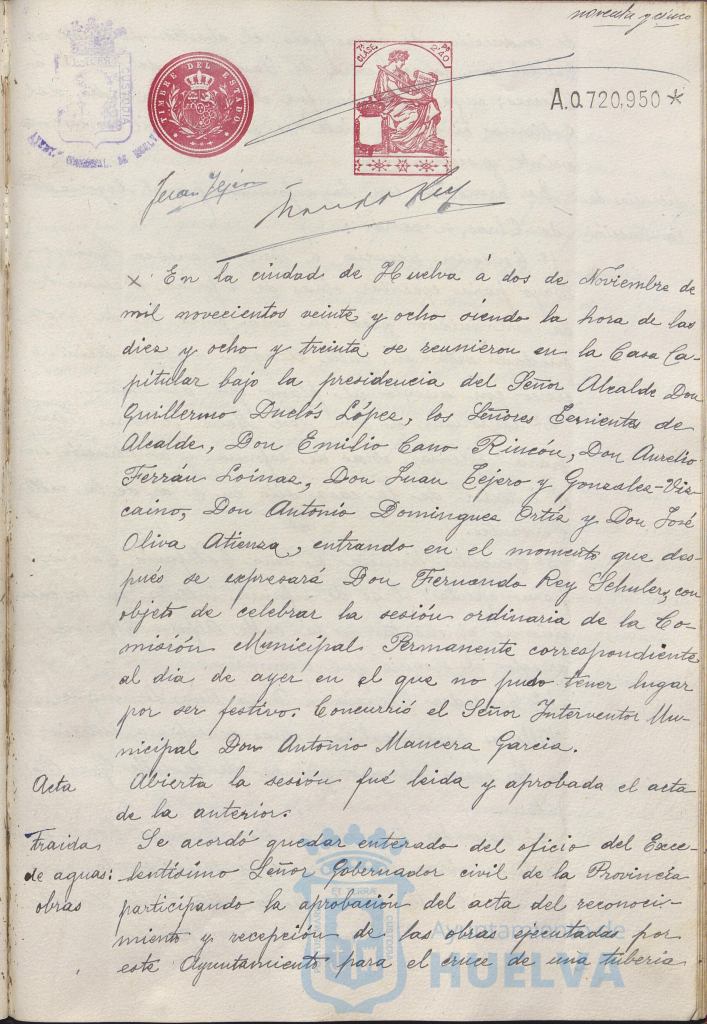 noventa y cinco
TIMBRE DEL ESTADO
7ª CLASE 2'40 Ps
A.0.720,950 *
CUSTODIA
Juan Tejero
Fernando Rey
x En la ciudad de Huelva á dos de Noviembre de
mil novecientos veinte y ocho siendo la hora de las
diez y ocho y treinta se reunieron en la Casa Ca-
pitular bajo la presidencia del Señor Alcalde Don
Guillermo Duclós López, los Señores Tenientes de
Alcalde, Don Emilio Cano Rincón, Don Aurelio
Ferrán Loinaz, Don Juan Tejero y Gonzalez-Viz-
caino, Don Antonio Dominguez Ortíz y Don José
Oliva Atienza, entrando en el momento que des-
pués se expresará Don Fernando Rey Schuler, con
objeto de celebrar la sesión ordinaria de la Co-
misión Municipal Permanente correspondiente
al dia de ayer en el que no pudo tener lugar
por ser festivo. Concurrió el Señor Interventor Mu-
nicipal Don Antonio Mancera Garcia.
Acta Abierta la sesión fué leida y aprobada el acta
de la anterior.
Traida Se acordó quedar enterado del oficio del Exce-
de aguas: lentísimo Señor Gobernador civil de la Provincia
obras participando la aprobación del acta del reconoci-
miento y recepción de las obras ejecutadas por
este Ayuntamiento para el cruce de una tuberia
Ayuntamiento de
HUELVA